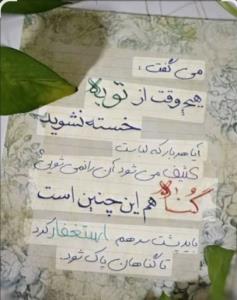 می گفت :
هیچ وقت از توبه
خسته نشوید
آیا هر بار که لباست
کثیف می شود آن را نمی شویی؟
گناه هم این چنین است
باید پشت سر هم استغفار کرد
تا گناهان پاک شود.